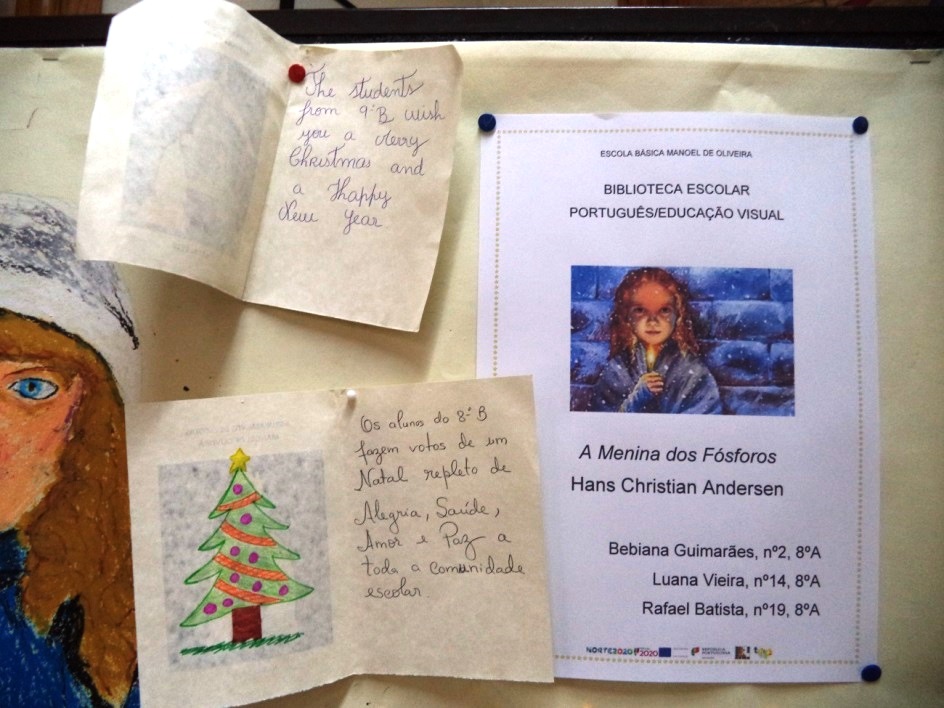 The students
from 9ºB wish
you a Merry
Christmas and
a Happy
New Year
ESCOLA BÁSICA MANOEL DE OLIVEIRA
BIBLIOTECA ESCOLAR
PORTUGUÊS/EDUCAÇÃO VISUAL
A Menina dos Fósforos
Hans Christian Andersen
Bebiana Guimarães, nº2, 8ºA
Luana Vieira, nº14, 8ºA
Rafael Batista, nº19, 8ºA
NORTE2020
2020
Os alunos do 8ºB
fazem votos de um
Natal repleto de
Alegria, Saúde,
Amor e Paz a
toda a comunidade
escolar